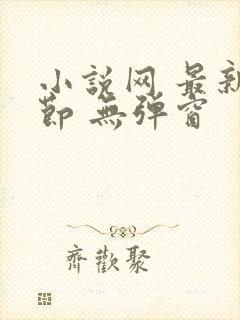 小説网 最新
節 無弹窗
齊歡聚